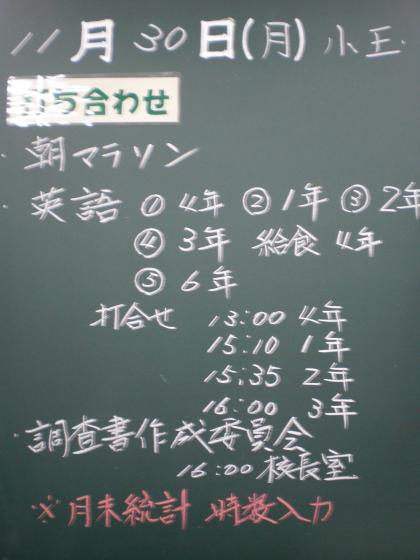 11月30日(月) 小玉
打ち合わせ
・朝マラソン
・英語 ① 4年 ② 1年 ③ 2年
④ 3年 給食 4年
⑤ 6年
打合せ 13:00 4年
15:10 1年
15:35 2年
16:00 3年
・調査書作成委員会
16:00 校長室
※月末統計 時数入力